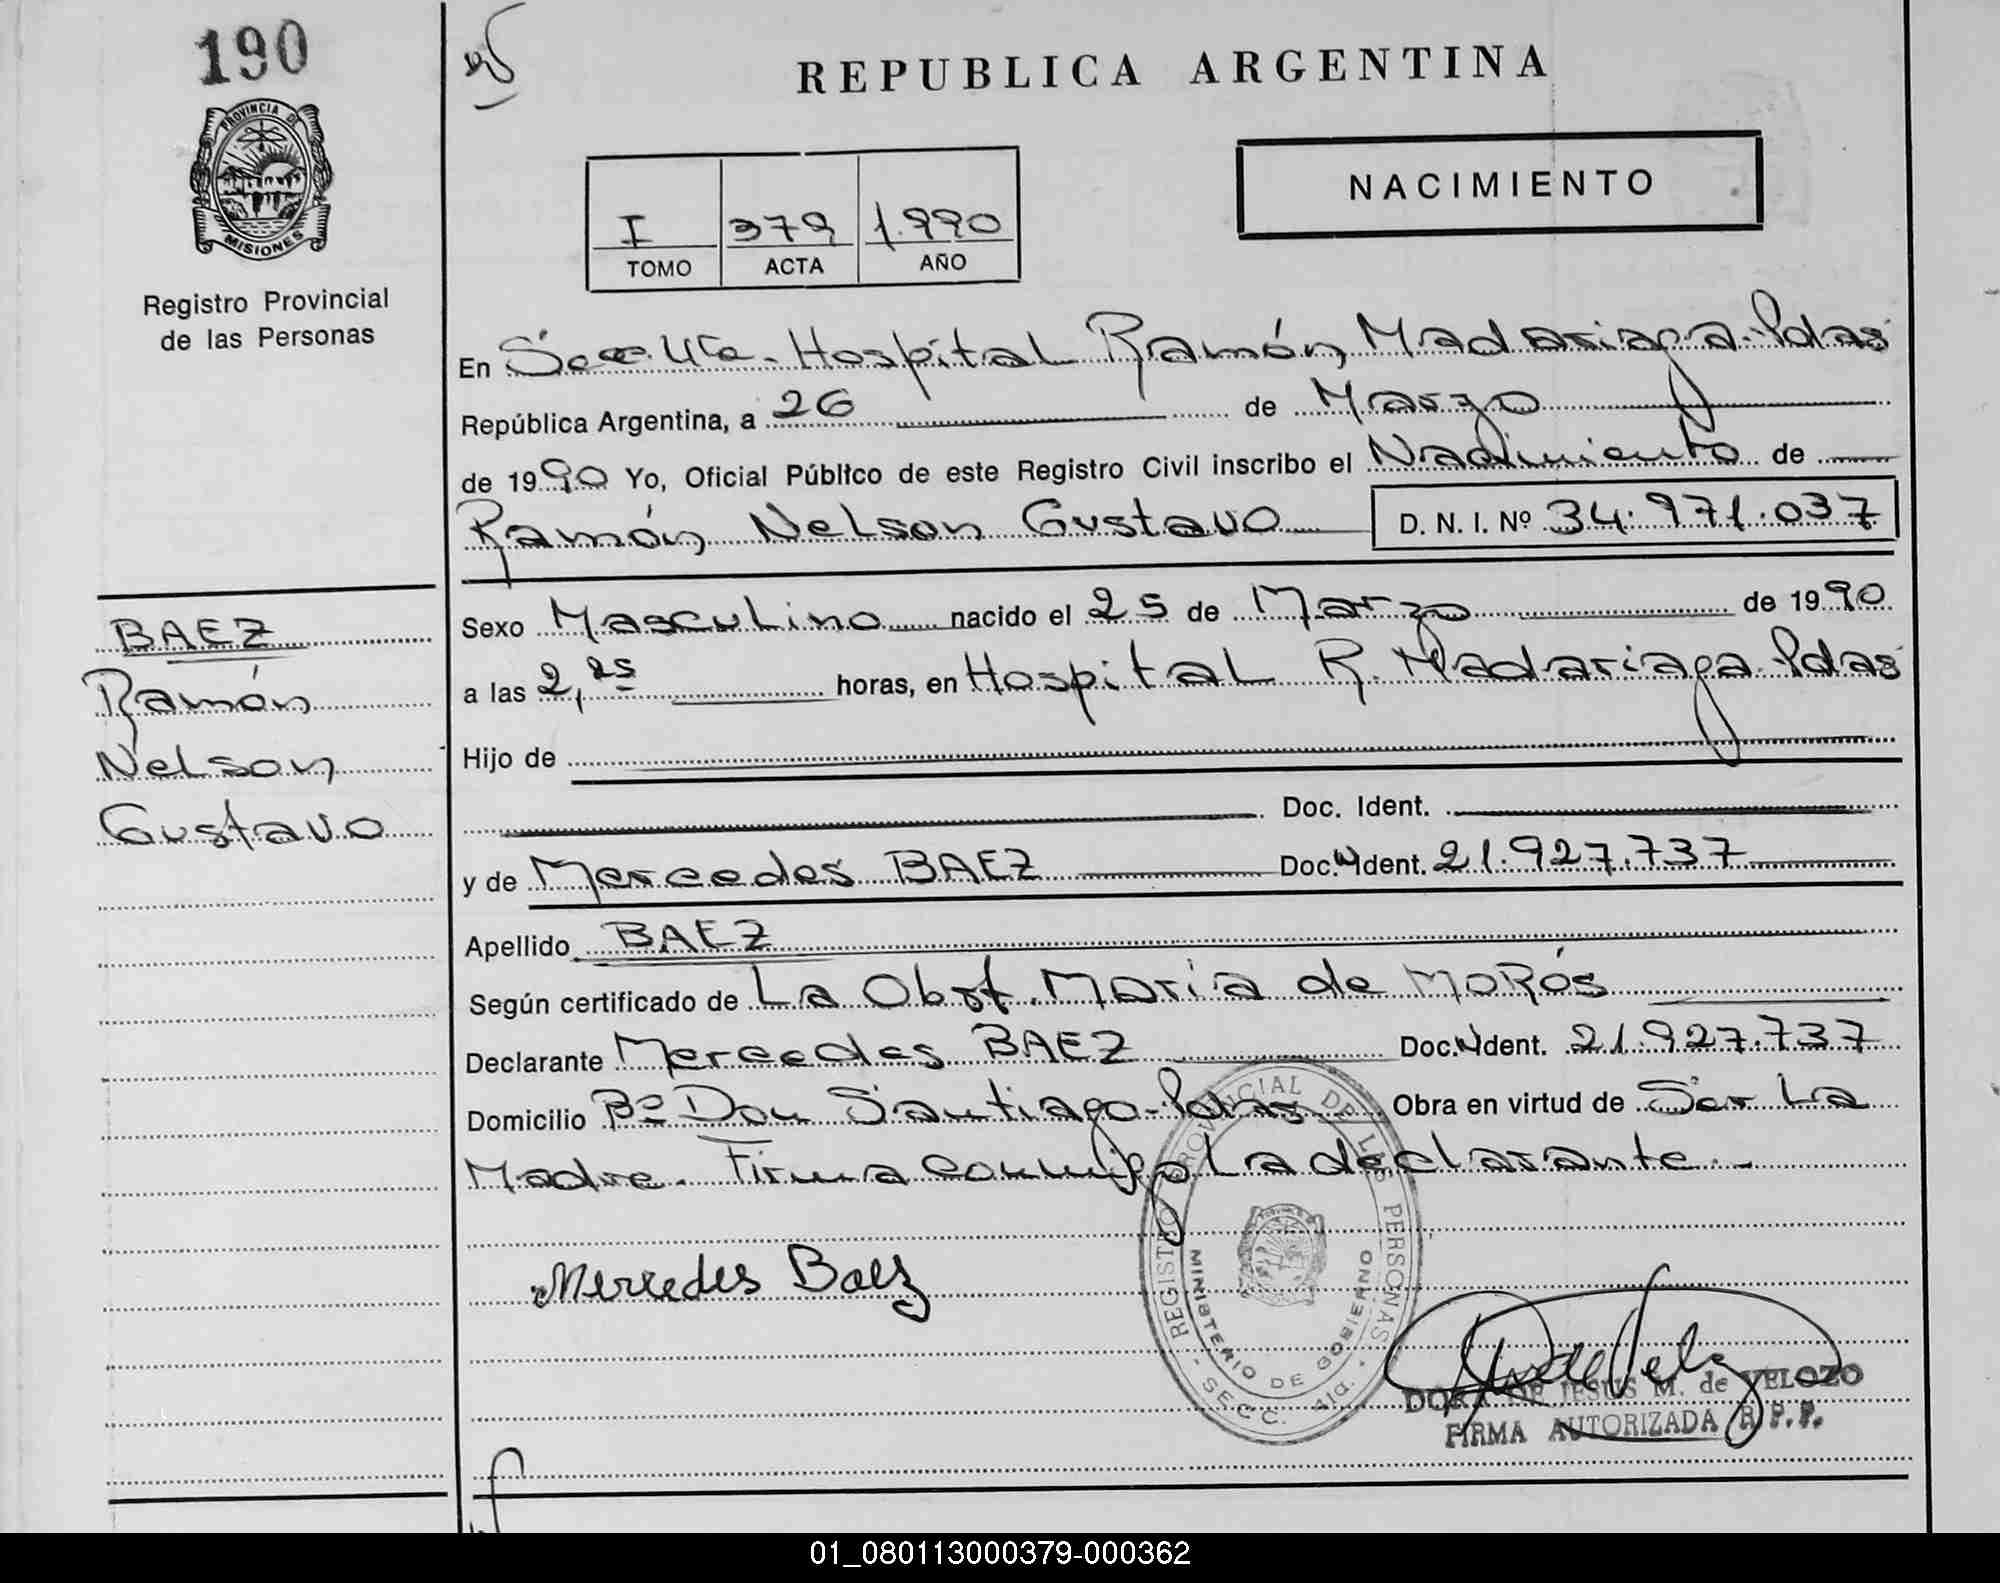 190
PROVINCIA DE
MISIONES
Registro Provincial
de las Personas
REPUBLICA ARGENTINA
NACIMIENTO
I 379 1.990
TOMO ACTA AÑO
En Secc. 4ta. Hospital Ramón Madariaga. Pdas
República Argentina, a 26 de Marzo
de 1990 Yo, Oficial Público de este Registro Civil inscribo el Nacimiento de
Ramón Nelson Gustavo D. N. I. Nº 34.971.037
BAEZ
Ramón
Nelson
Gustavo
Sexo Masculino nacido el 25 de Marzo de 1990
a las 2,25 horas, en Hospital R. Madariaga. Pdas
Hijo de
Doc. Ident.
y de Mercedes BAEZ Doc. Ident. 21.927.737
Apellido BAEZ
Según certificado de La Obst. Maria de MoRós
Declarante Mercedes BAEZ Doc. Ident. 21.927.737
Domicilio Bº Don Santiago. Pdas Obra en virtud de Ser La
Madre. Firma conmigo La declarante.-
Mercedes Baez
REGISTRO PROVINCIAL DE LAS PERSONAS
MINISTERIO DE GOBIERNO
- SECC. 4ta. -
DORA DE JESUS M. de VELOZO
FIRMA AUTORIZADA R.P.P.
01_080113000379-000362